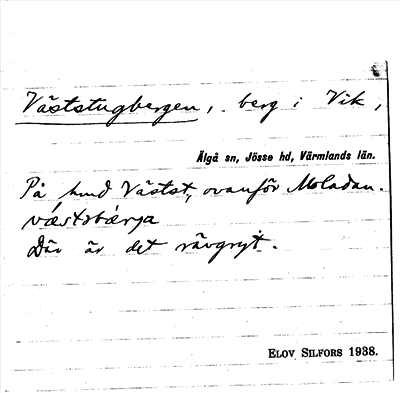 Väststugbergen, berg i Vik,
Älgå sn, Jösse hd, Värmlands län.
På hmd Västst, ovanför Moladan.
Där är det rävgryt.
ELOV SILFORS 1938.